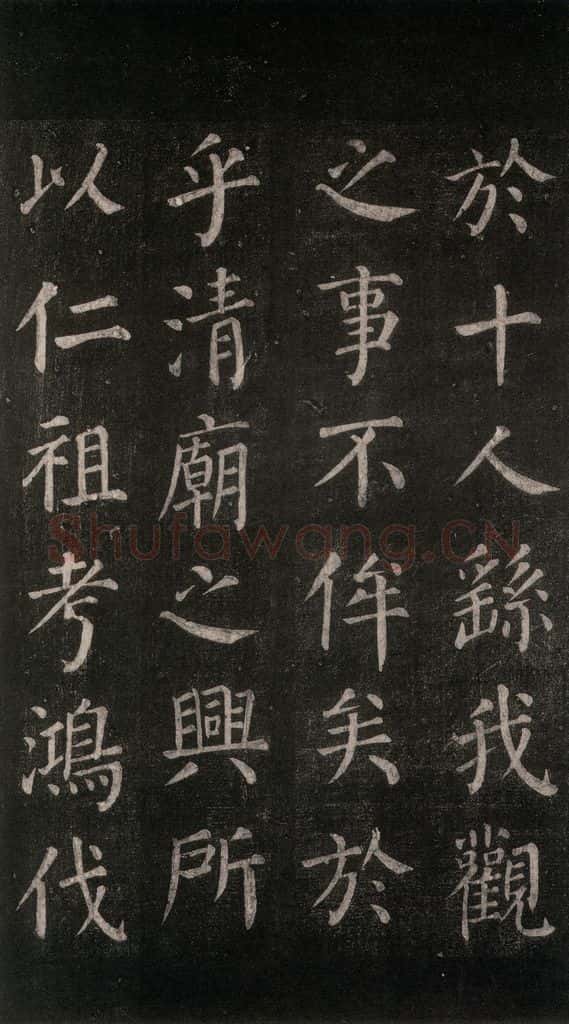 於十人繇我觀
之事不侔矣於
乎清廟之興所
以仁祖考鴻伐
Shufawang.CN